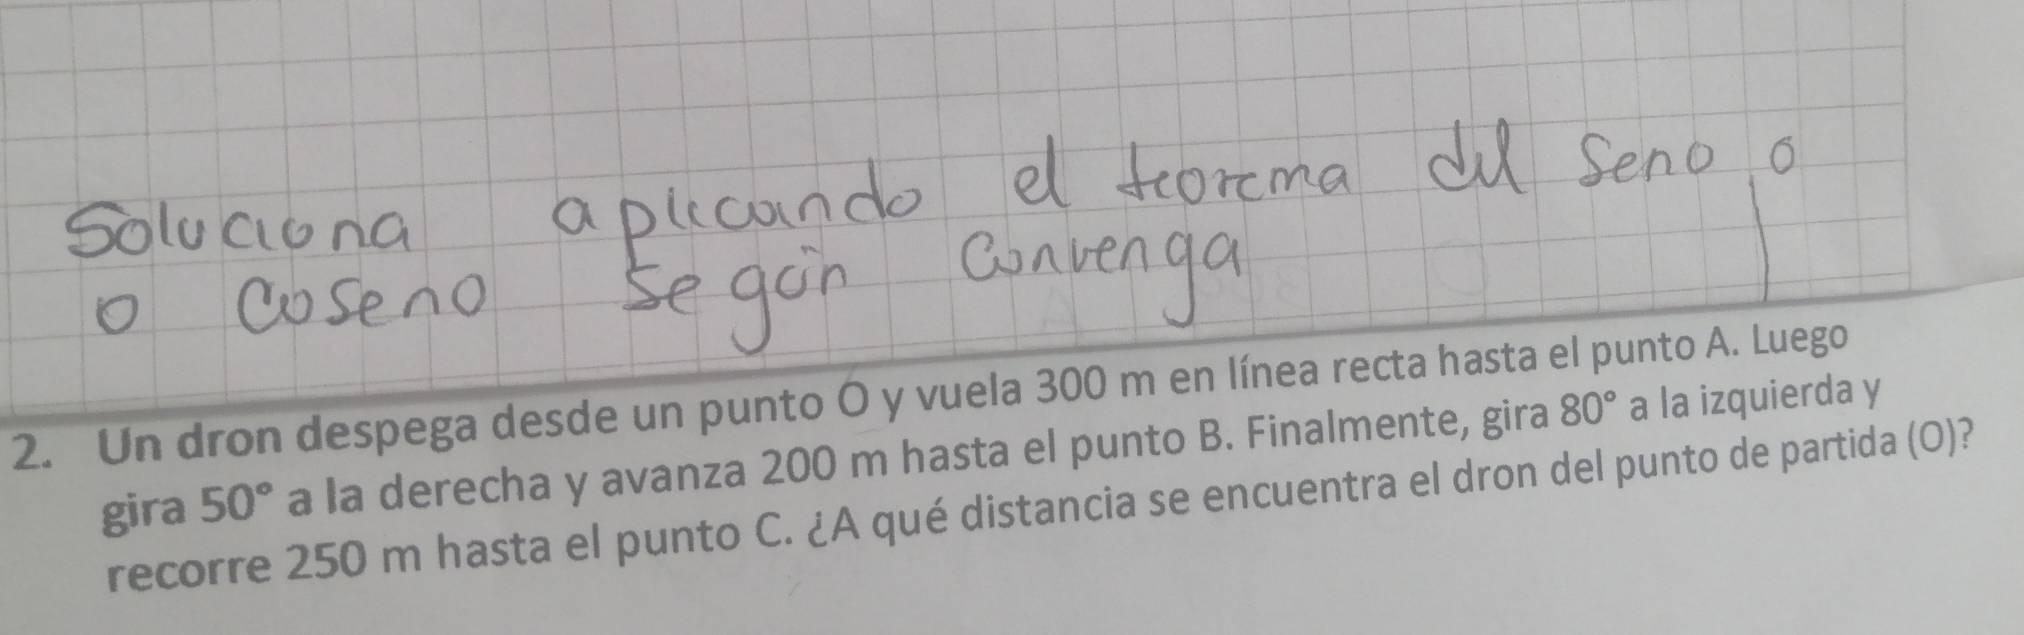 Soluciona aplicando el teorema del seno o
o coseno según convenga
2. Un dron despega desde un punto O y vuela 300 m en línea recta hasta el punto A. Luego
gira 50° a la derecha y avanza 200 m hasta el punto B. Finalmente, gira 80° a la izquierda y
recorre 250 m hasta el punto C. ¿A qué distancia se encuentra el dron del punto de partida (O)?